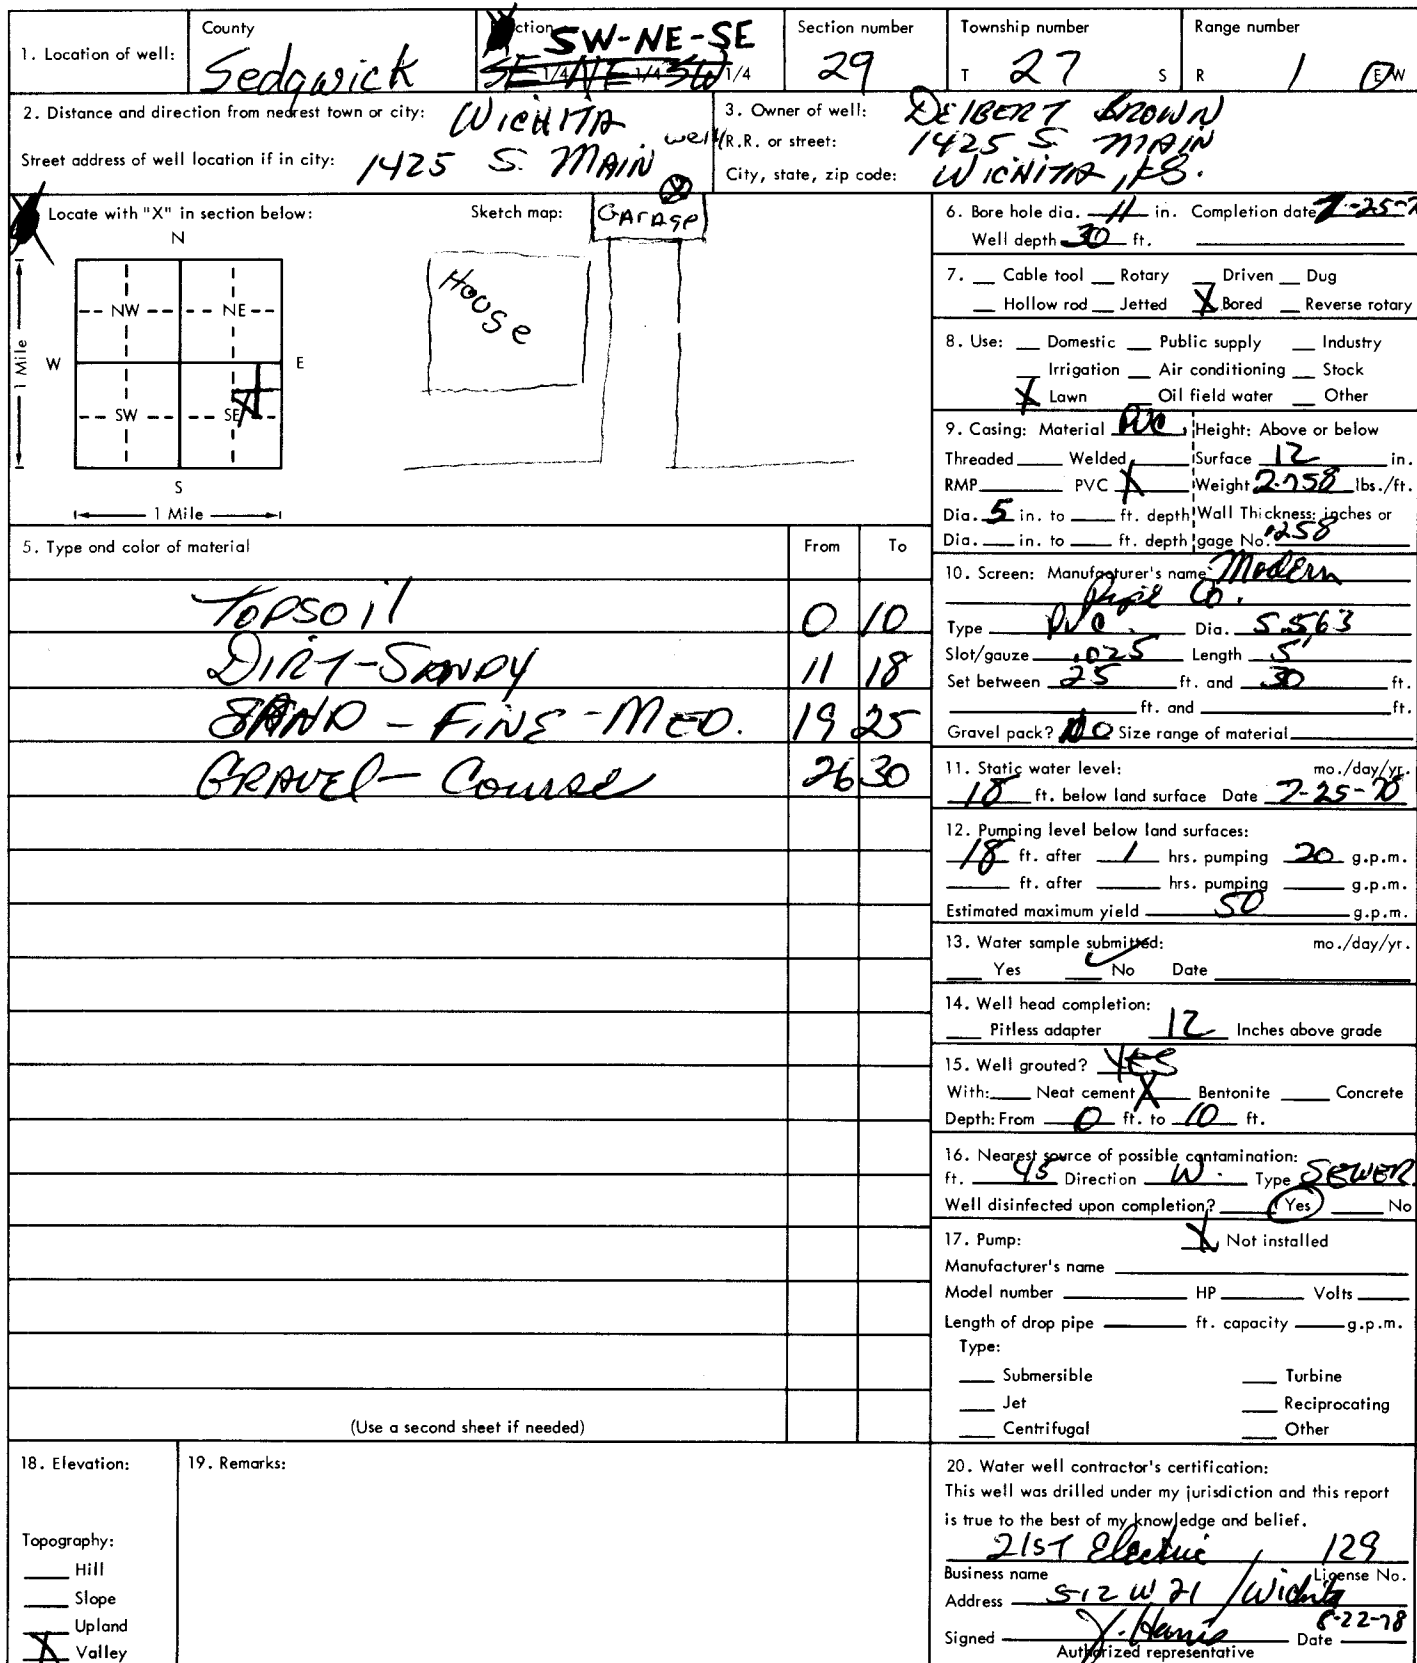 1. Location of well:
County
Sedgwick
ction SW-NE-SE
SE 1/4 NE 1/4 SW 1/4
Section number
29
Township number
T 27 S
Range number
R 1 E W
2. Distance and direction from nearest town or city: WICHITA
Street address of well location if in city: 1425 S. MAIN
3. Owner of well: DELBERT BROWN
R.R. or street: 1425 S. MAIN
City, state, zip code: WICHITA, KS.
Locate with "X" in section below:
N
NW NE
W E
SW SE
S
1 Mile
1 Mile
Sketch map:
well
GARAGE
House
5. Type and color of material From To
TOPSOIL 0 10
DIRT-SANDY 11 18
SAND - FINE - MED. 19 25
GRAVEL - Course 26 30
(Use a second sheet if needed)
6. Bore hole dia. 11 in. Completion date 7-25-7
Well depth 30 ft.
7. Cable tool Rotary Driven Dug
Hollow rod Jetted X Bored Reverse rotary
8. Use: Domestic Public supply Industry
Irrigation Air conditioning Stock
X Lawn Oil field water Other
9. Casing: Material PVC Height: Above or below
Threaded Welded Surface 12 in.
RMP PVC X Weight 2.758 lbs./ft.
Dia. 5 in. to ft. depth Wall Thickness: inches or
Dia. in. to ft. depth gage No. .258
10. Screen: Manufacturer's name Modern
Pipe Co.
Type PVC. Dia. 5.563
Slot/gauze .025 Length 5'
Set between 25 ft. and 30 ft.
ft. and ft.
Gravel pack? NO Size range of material
11. Static water level: mo./day/yr.
18 ft. below land surface Date 7-25-78
12. Pumping level below land surfaces:
18 ft. after 1 hrs. pumping 20 g.p.m.
ft. after hrs. pumping g.p.m.
Estimated maximum yield 50 g.p.m.
13. Water sample submitted: mo./day/yr.
Yes ✓ No Date
14. Well head completion:
Pitless adapter 12 Inches above grade
15. Well grouted? YES
With: Neat cement X Bentonite Concrete
Depth: From 0 ft. to 10 ft.
16. Nearest source of possible contamination:
ft. 45 Direction W. Type SEWER
Well disinfected upon completion? Yes No
17. Pump: X Not installed
Manufacturer's name
Model number HP Volts
Length of drop pipe ft. capacity g.p.m.
Type:
Submersible Turbine
Jet Reciprocating
Centrifugal Other
18. Elevation:
Topography:
Hill
Slope
Upland
X Valley
19. Remarks:
20. Water well contractor's certification:
This well was drilled under my jurisdiction and this report
is true to the best of my knowledge and belief.
21ST Electric 129
Business name License No.
Address 512 W 21 / Wichita
Signed J. Harris Date 8-22-78
Authorized representative